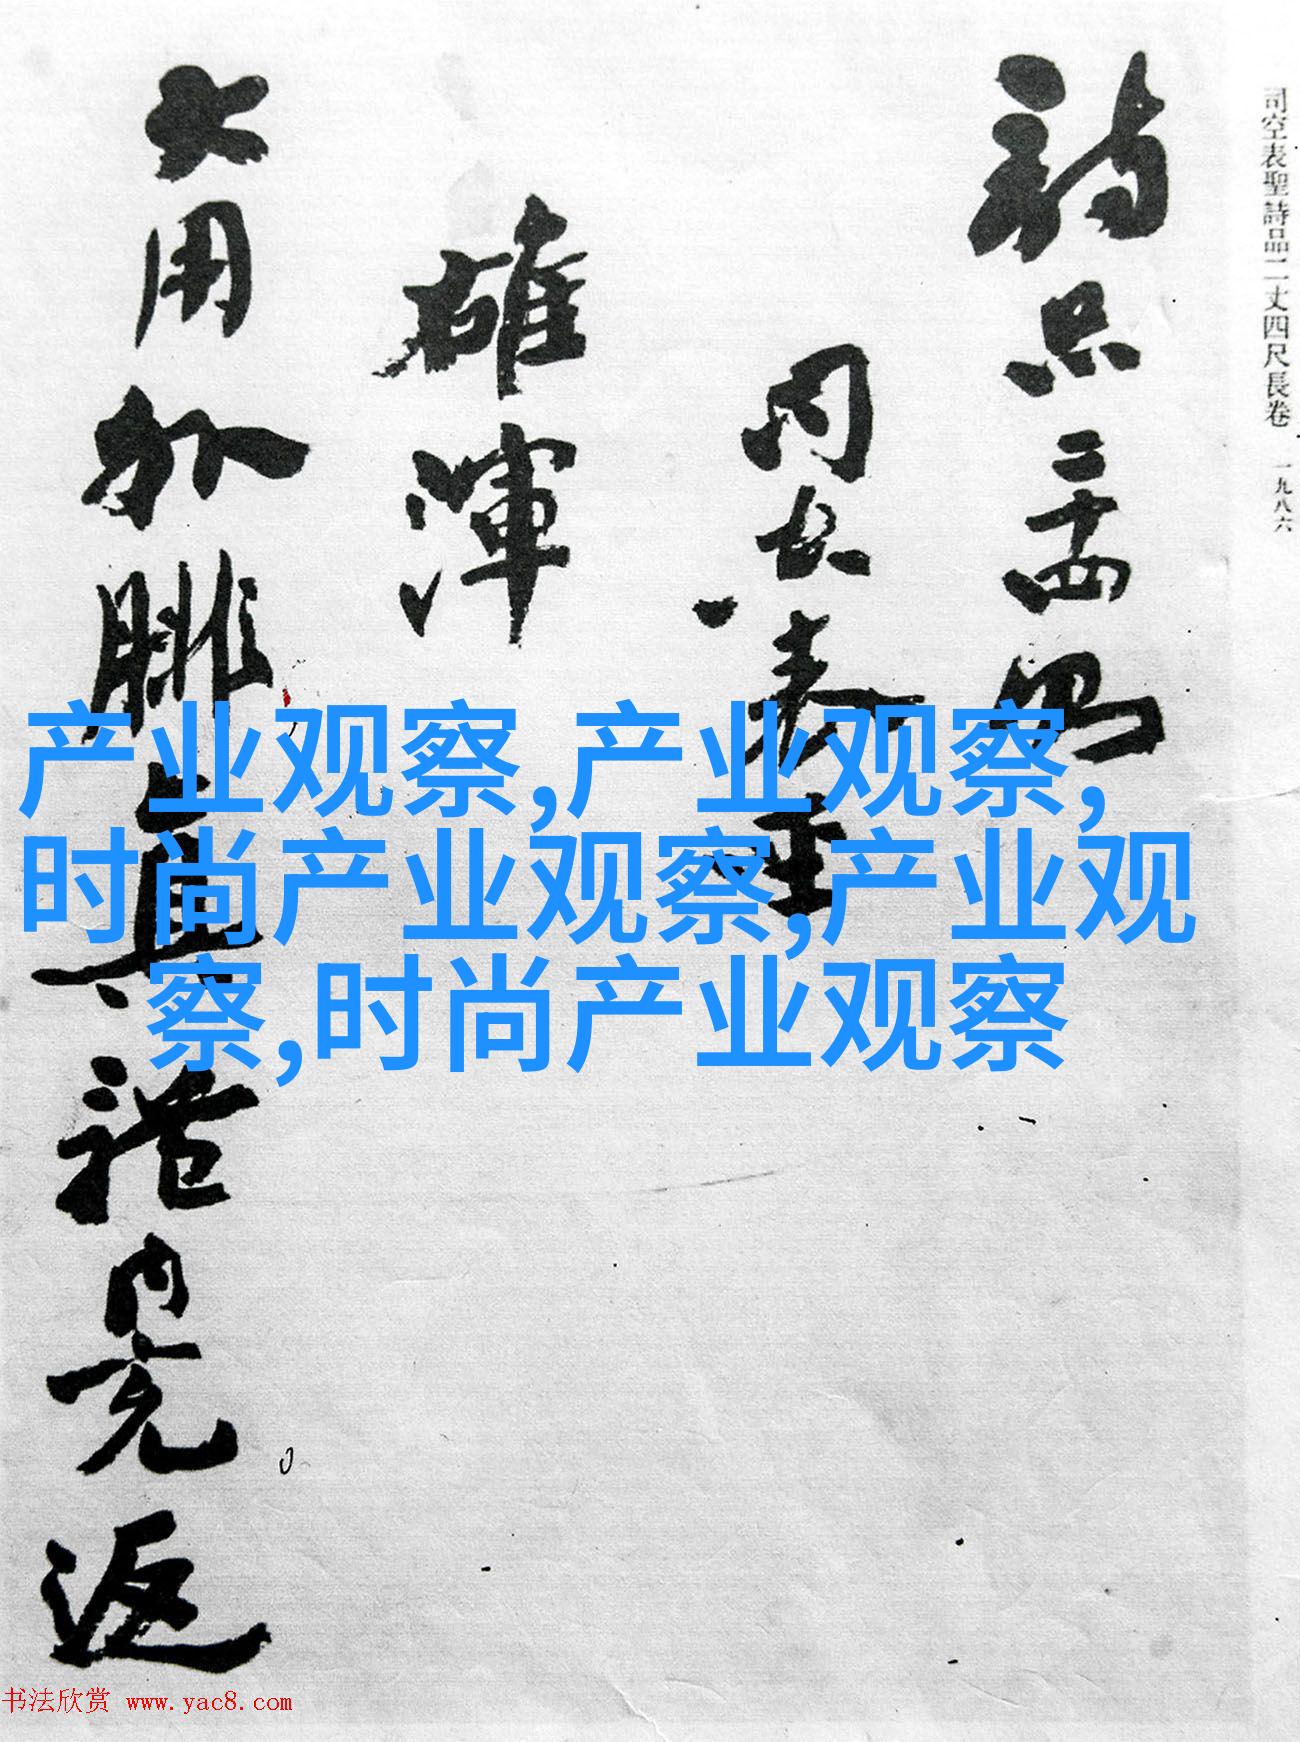 司空表聖詩品二丈四尺長卷 一九八六
詩品二十四則
司空表聖
雄渾
大用外腓真體內充返
产业观察,产业观察,
时尚产业观察,产业观
察,时尚产业观察
书法欣赏 www.yac8.com